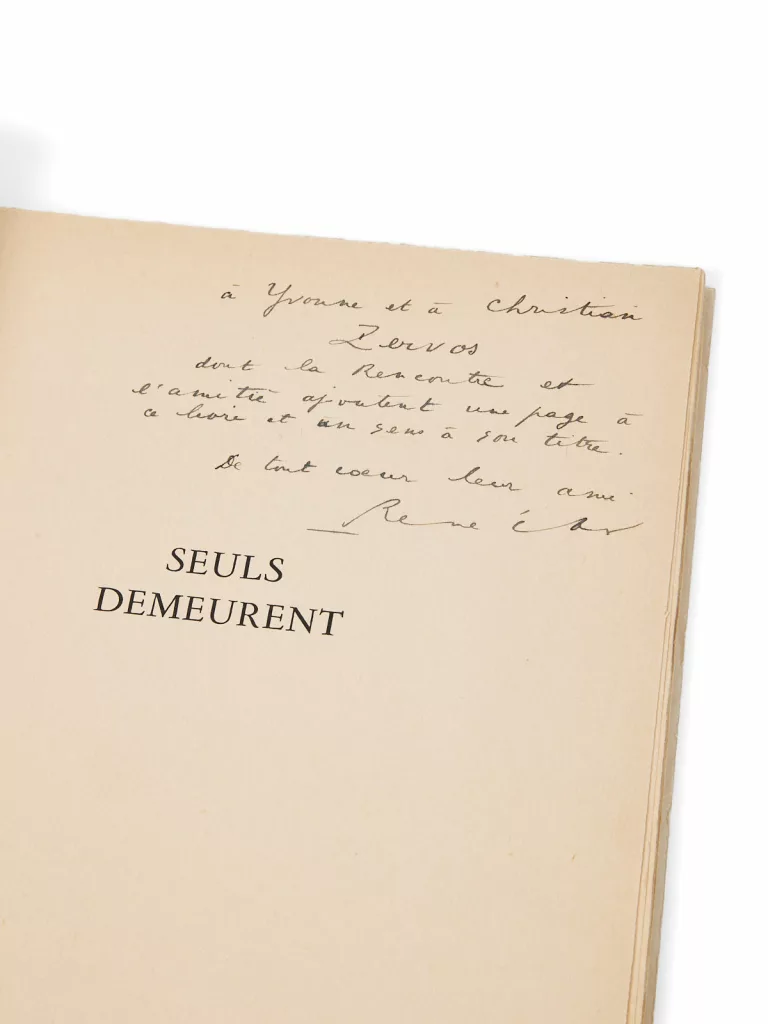 à Yvonne et à Christian
Zervos
dont la Rencontre et
l'amitié ajoutent une page à
ce livre et un sens à son titre.
De tout cœur leur ami
René Char
SEULS
DEMEURENT